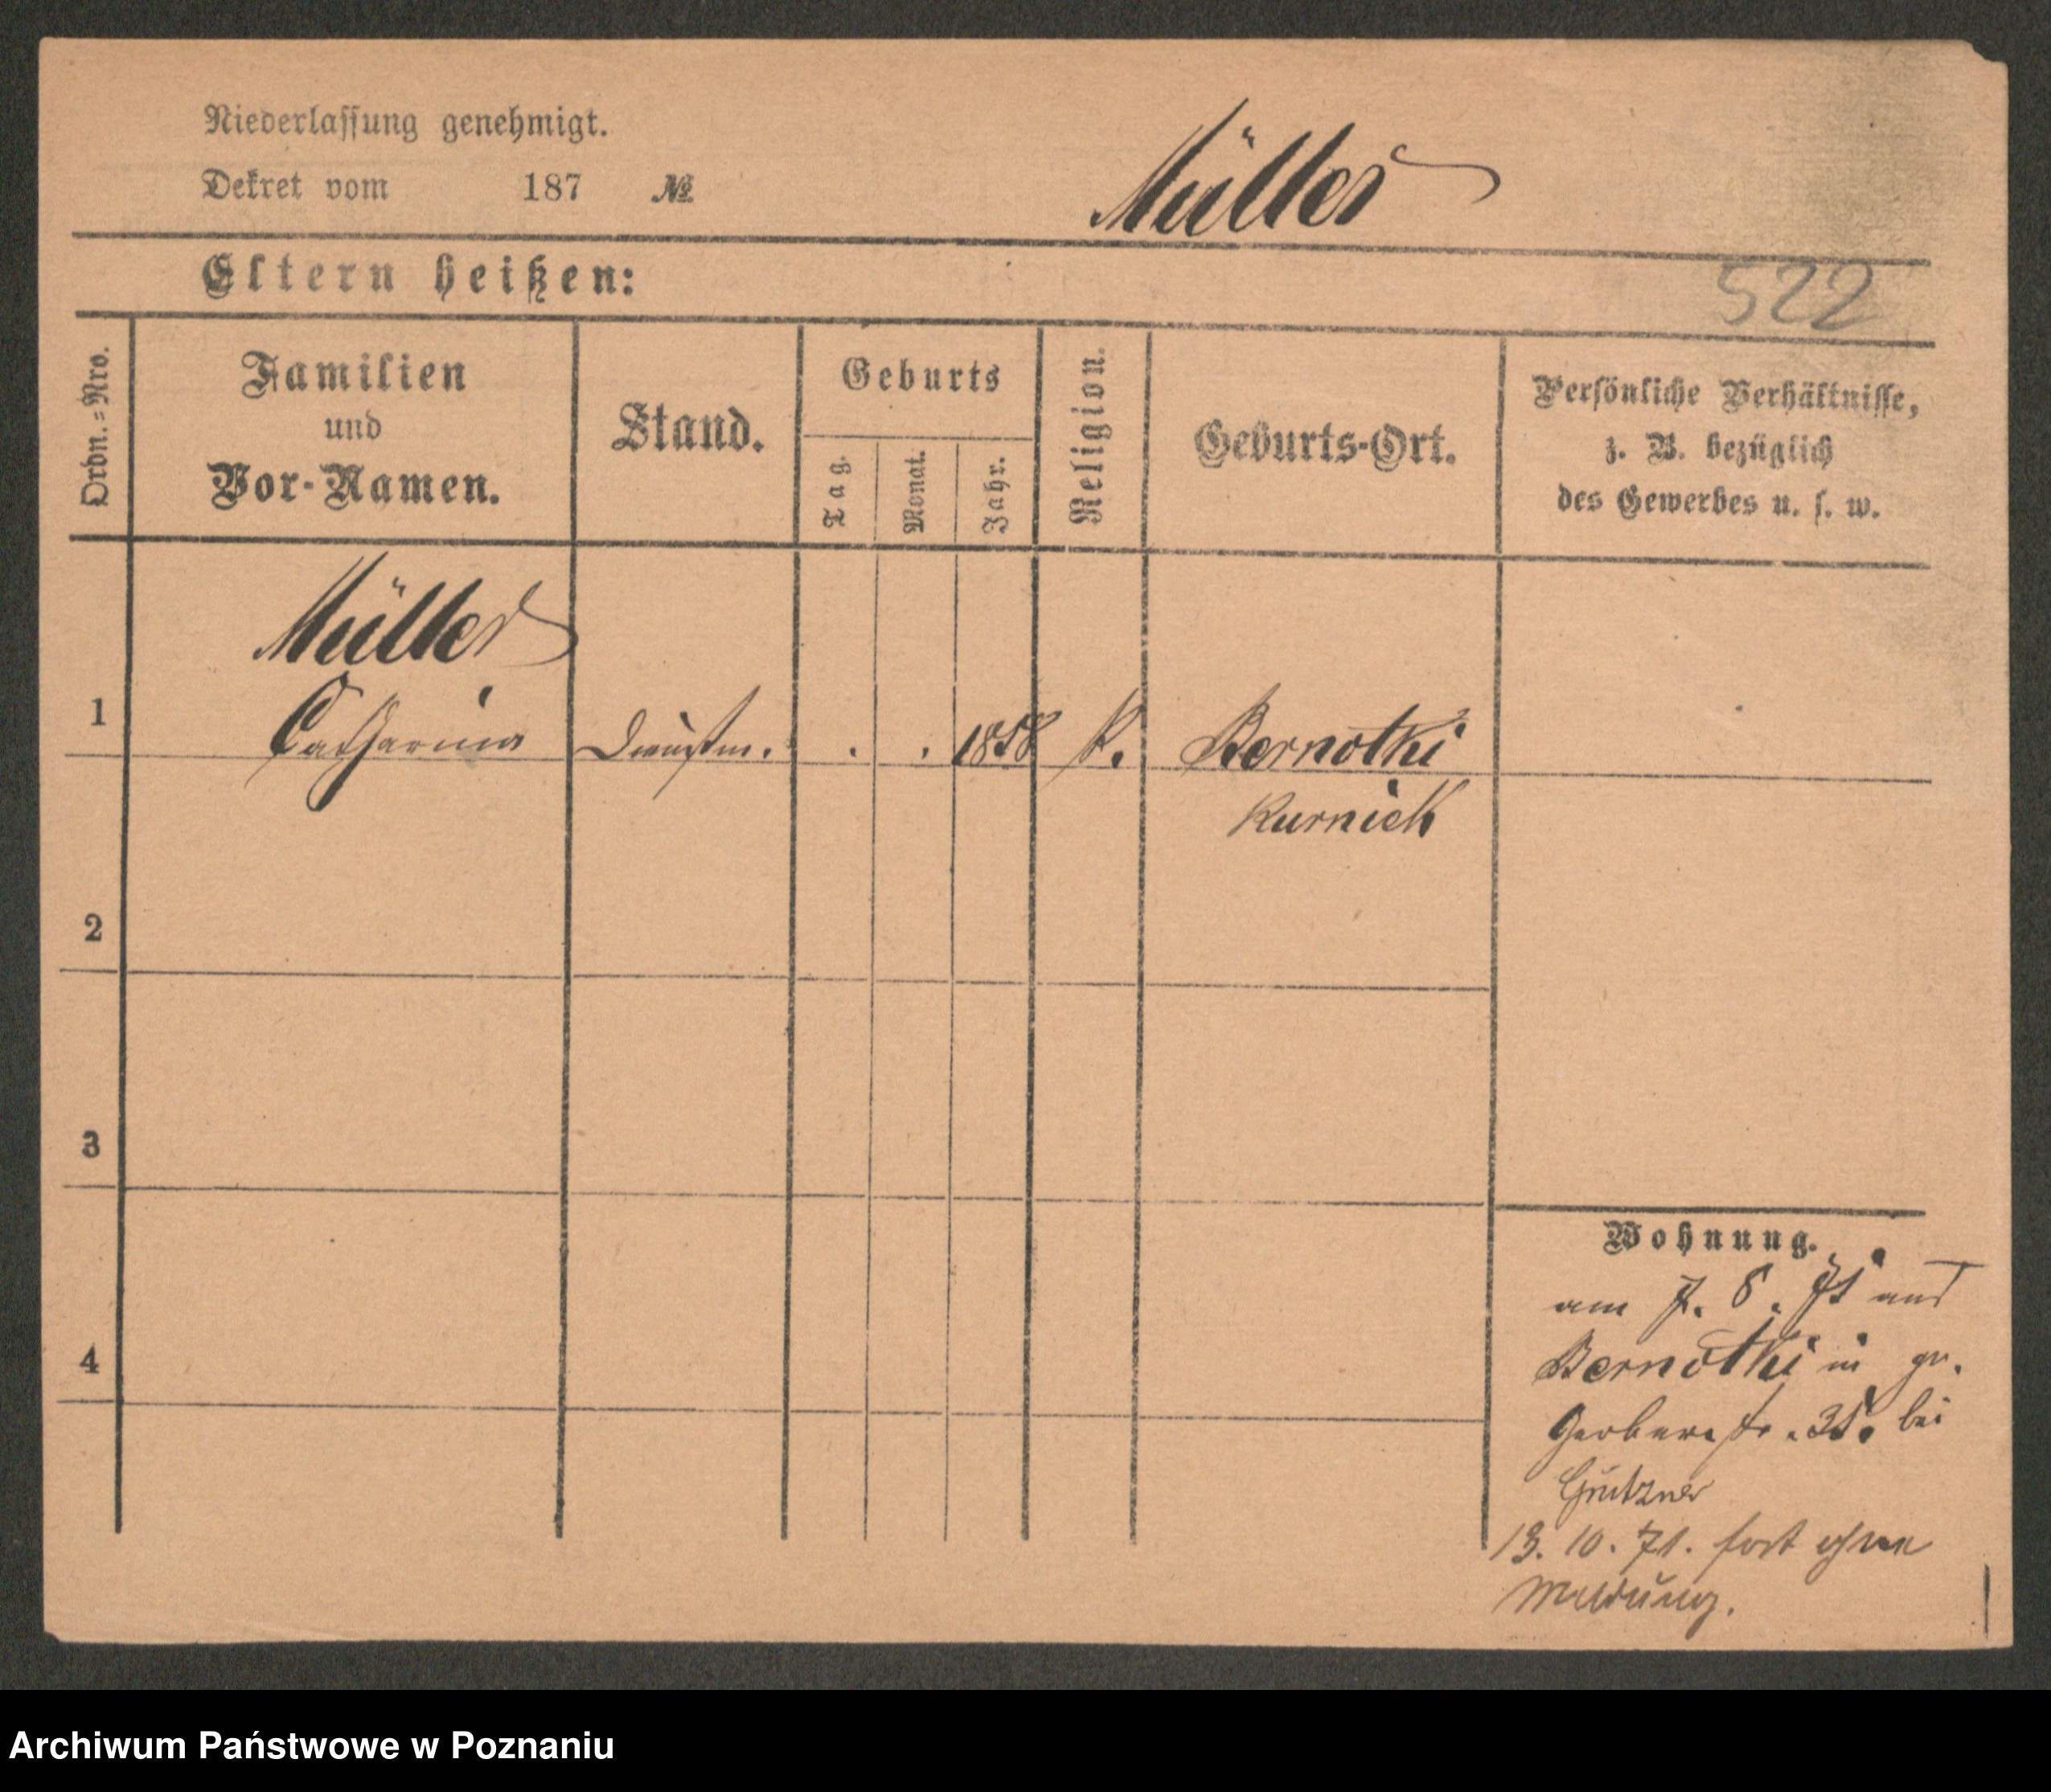 Niederlassung genehmigt.
Dekret vom 187 №
Müller
Eltern heißen:
522
Ordn.=Nro.
Familien
und
Vor-Namen.
Stand.
Geburts
Tag.
Monat.
Jahr.
Religion.
Geburts-Ort.
Persönliche Verhältnisse,
z. B. bezüglich
des Gewerbes u. s. w.
Müller
1 Catharina Dienstm. . . 1858 k. Bernotki
Kurnick
2
3
4
Wohnung.
am 7. 8. 71 aus
Bernotki in gr.
Gerberstr. 35. bei
Grützner
13. 10. 71. fort ohne
Meldung.
Archiwum Państwowe w Poznaniu